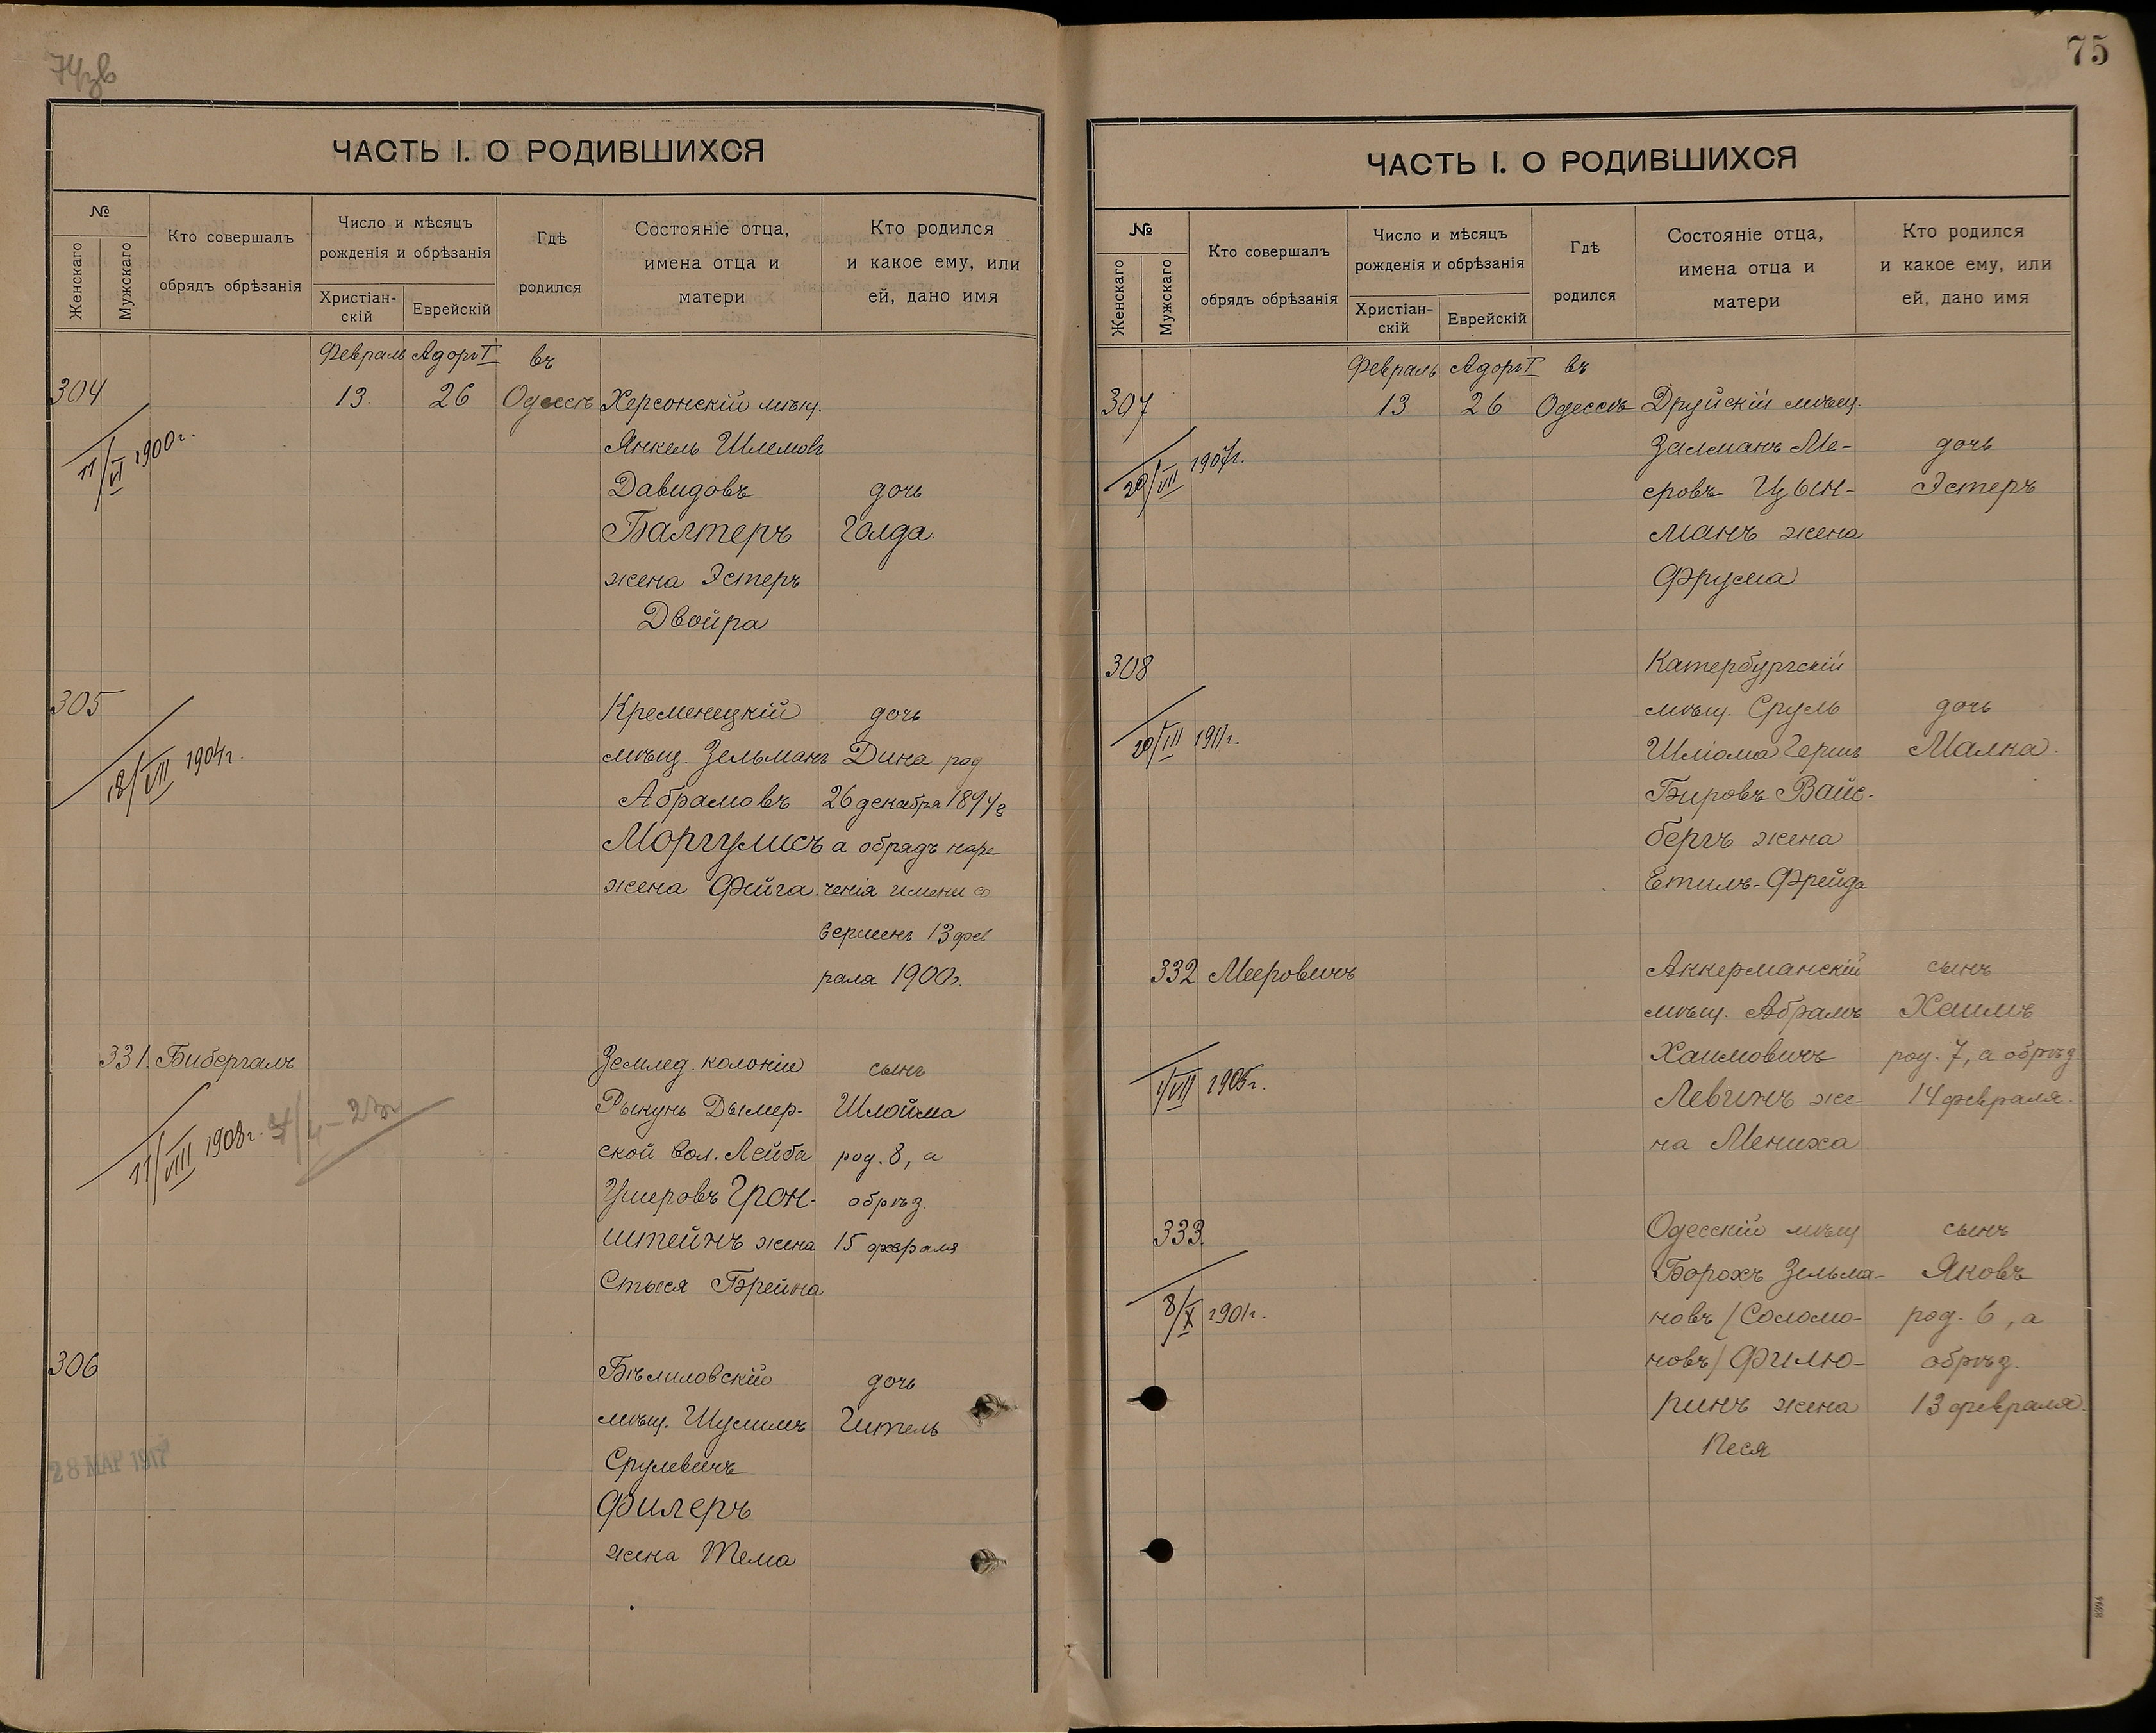 74зв
ЧАСТЬ I. О РОДИВШИХСЯ
№
Женскаго
Мужскаго
Кто совершалъ
обрядъ обрѣзанія
Число и мѣсяцъ
рожденія и обрѣзанія
Христіан-
скій
Еврейскій
Гдѣ
родился
Состояніе отца,
имена отца и
матери
Кто родился
и какое ему, или
ей, дано имя
Февраль Адоръ I въ
304 13. 26 Одессѣ Херсонскій мѣщ.
11/VI 1900г.
Янкель Шлемовъ
Давидовъ дочь
Балтеръ Голда.
жена Эстеръ
Двойра
305 Кременецкій дочь
18/VII 1904г.
мѣщ. Зельманъ Дина род.
Абрамовъ 26 декабря 1894 г
Моргулисъ а обрядъ наре
жена Фейга. ченія имени со
вершенъ 13 фев
раля 1900г.
331. Бибергалъ Землед. колоніи сынъ
11/VIII 1908г.
Рыкунь Дымер- Шлойма
ской вол. Лейба род. 8, а
Ушеровъ Грон- обрѣз.
штейнъ жена 15 февраля
Стыся Брейна
306 Бѣлиловскій дочь
мѣщ. Шулимъ Гитель
28 МАР 1917
Срулевичъ
Филеръ
жена Тема
75
ЧАСТЬ I. О РОДИВШИХСЯ
№
Женскаго
Мужскаго
Кто совершалъ
обрядъ обрѣзанія
Число и мѣсяцъ
рожденія и обрѣзанія
Христіан-
скій
Еврейскій
Гдѣ
родился
Состояніе отца,
имена отца и
матери
Кто родился
и какое ему, или
ей, дано имя
Февраль Адоръ I въ
307 13 26 Одессѣ Друйскій мѣщ.
20/VII 1907г.
Залманъ Ме- дочь
еровъ Цын- Эстеръ
манъ жена
Фрума
308 Катербургскій
мѣщ. Сруль дочь
20/III 1911г.
Шліома Гершъ Малка.
Бировъ Вайс-
бергъ жена
Етиль-Фрейда
332 Мееровичъ Аккерманскій сынъ
мѣщ. Абрамъ Хаимъ
Хаимовичъ род. 7, а обрѣз
1/VII 1905г.
Левинъ же- 14 февраля.
на Мениха
333. Одесскій мѣщ сынъ
Борохъ Зельма- Яковъ
8/X 1901г.
новъ /Соломо- род. 6, а
новъ/ Филю- обрѣз.
ринъ жена 13 февраля.
Песя